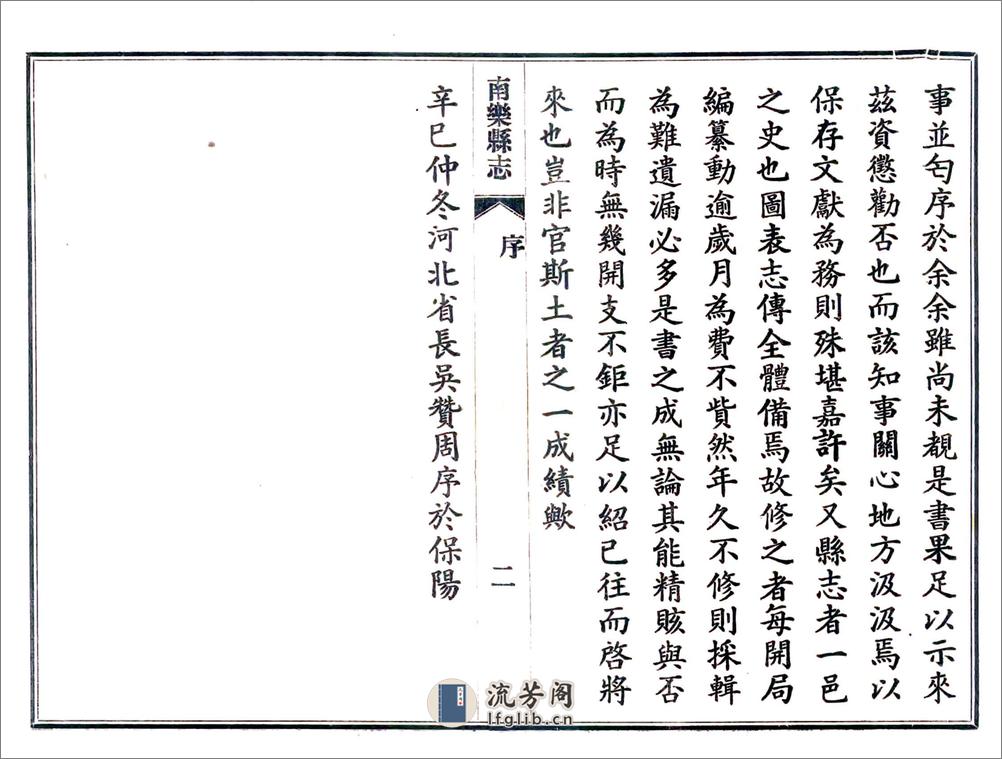 事並匄序於余余雖尚未覩是書果足以示來
茲資懲勸否也而該知事關心地方汲汲焉以
保存文獻為務則殊堪嘉許矣又縣志者一邑
之史也圖表志傳全體備焉故修之者每開局
編纂動逾歲月為費不貲然年久不修則採輯
為難遺漏必多是書之成無論其能精賅與否
而為時無幾開支不鉅亦足以紹已往而啓將
來也豈非官斯土者之一成績歟
南樂縣志
序
二
辛巳仲冬河北省長吳贊周序於保陽
流芳阁
lfglib.cn